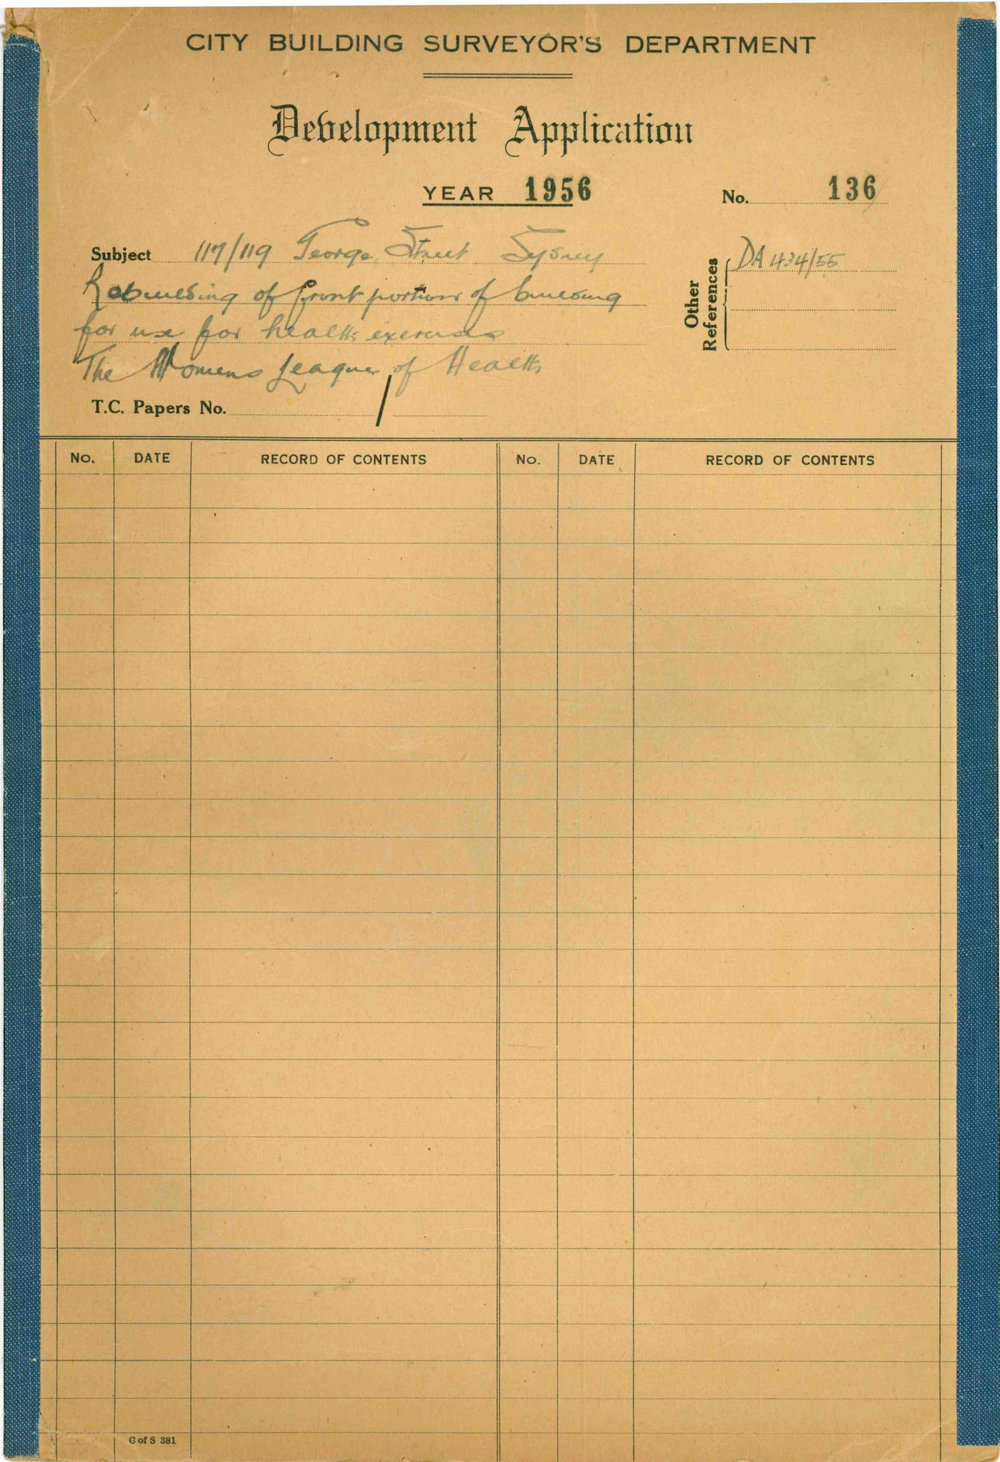 CITY BUILDING SURVEYOR'S DEPARTMENT
Development Application
YEAR 1956
No. 136
Subject 117/119 George Street Sydney
Rebuilding of front portion of building
for use for health exercises
The Womens League of Health
Other References
DA 434/55
T.C. Papers No. /
No. DATE RECORD OF CONTENTS No. DATE RECORD OF CONTENTS
C of S 381